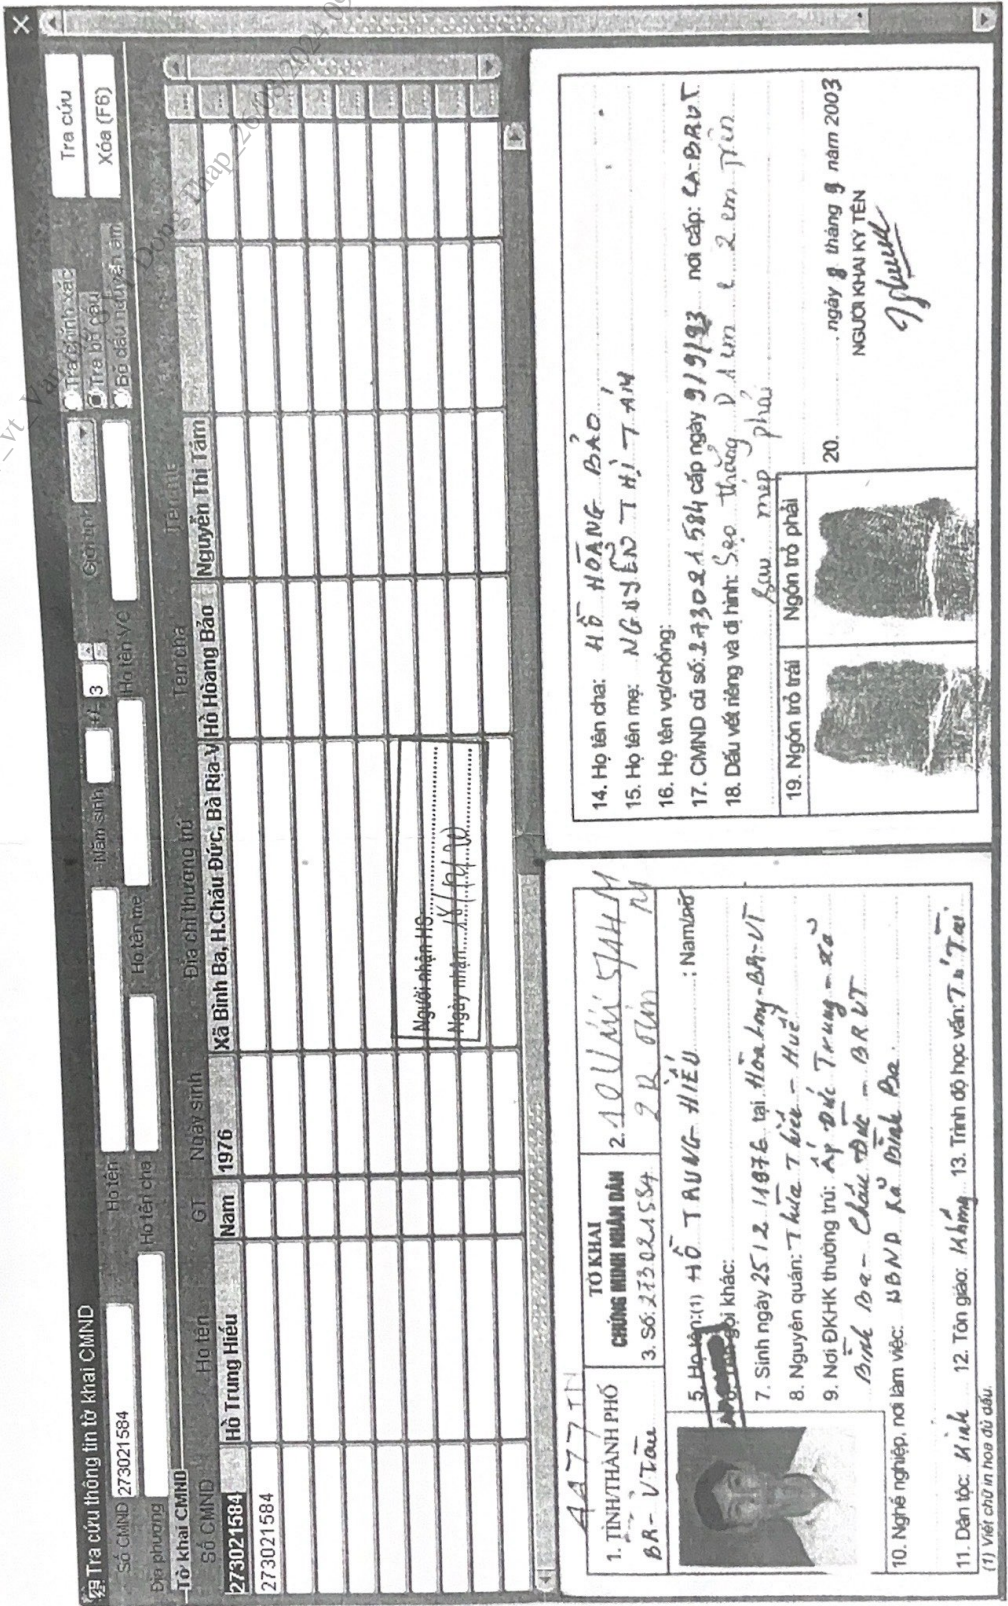 Tra cứu thông tin tờ khai CMND
Số CMND 273021584 Họ tên Năm sinh +/- 3 Giới tính Tra chính xác Tra cứu
Địa phương Họ tên cha Họ tên mẹ Họ tên V/C Tra bỏ dấu Xóa (F6)
Bỏ dấu nguyên âm
Tờ khai CMND
Số CMND Họ tên GT Ngày sinh Địa chỉ thường trú Tên cha Tên mẹ
273021584 Hồ Trung Hiếu Nam 1976 Xã Bình Ba, H.Châu Đức, Bà Rịa-V Hồ Hoàng Bảo Nguyễn Thị Tám
273021584
Người nhận HS
Ngày nhận
1. TỈNH/THÀNH PHỐ
BR - VTàu
TỜ KHAI
CHỨNG MINH NHÂN DÂN
3. Số: 273021584
2.
5. Họ tên:(1) HỒ TRUNG HIẾU : Nam/nữ
6. Tên gọi khác:
7. Sinh ngày 25/12/1976 tại BR-VT
8. Nguyên quán: Thừa Thiên - Huế
9. Nơi ĐKHK thường trú: Ấp Đức Trung - xã
Bình Ba - Châu Đức - BRVT
10. Nghề nghiệp, nơi làm việc: UBND Xã Bình Ba.
11. Dân tộc: Kinh 12. Tôn giáo: Không 13. Trình độ học vấn:
(1) Viết chữ in hoa đủ dấu.
14. Họ tên cha: HỒ HOÀNG BẢO
15. Họ tên mẹ: NGUYỄN THỊ TÁM
16. Họ tên vợ/chồng:
17. CMND cũ số: 273021584 cấp ngày 9/9/93 nơi cấp: CA-BRVT
18. Dấu vết riêng và dị hình: Sẹo thẳng 1 cm 2 cm trên
sau mép phải
19. Ngón trỏ trái Ngón trỏ phải
20. ngày 8 tháng 9 năm 2003
NGƯỜI KHAI KÝ TÊN